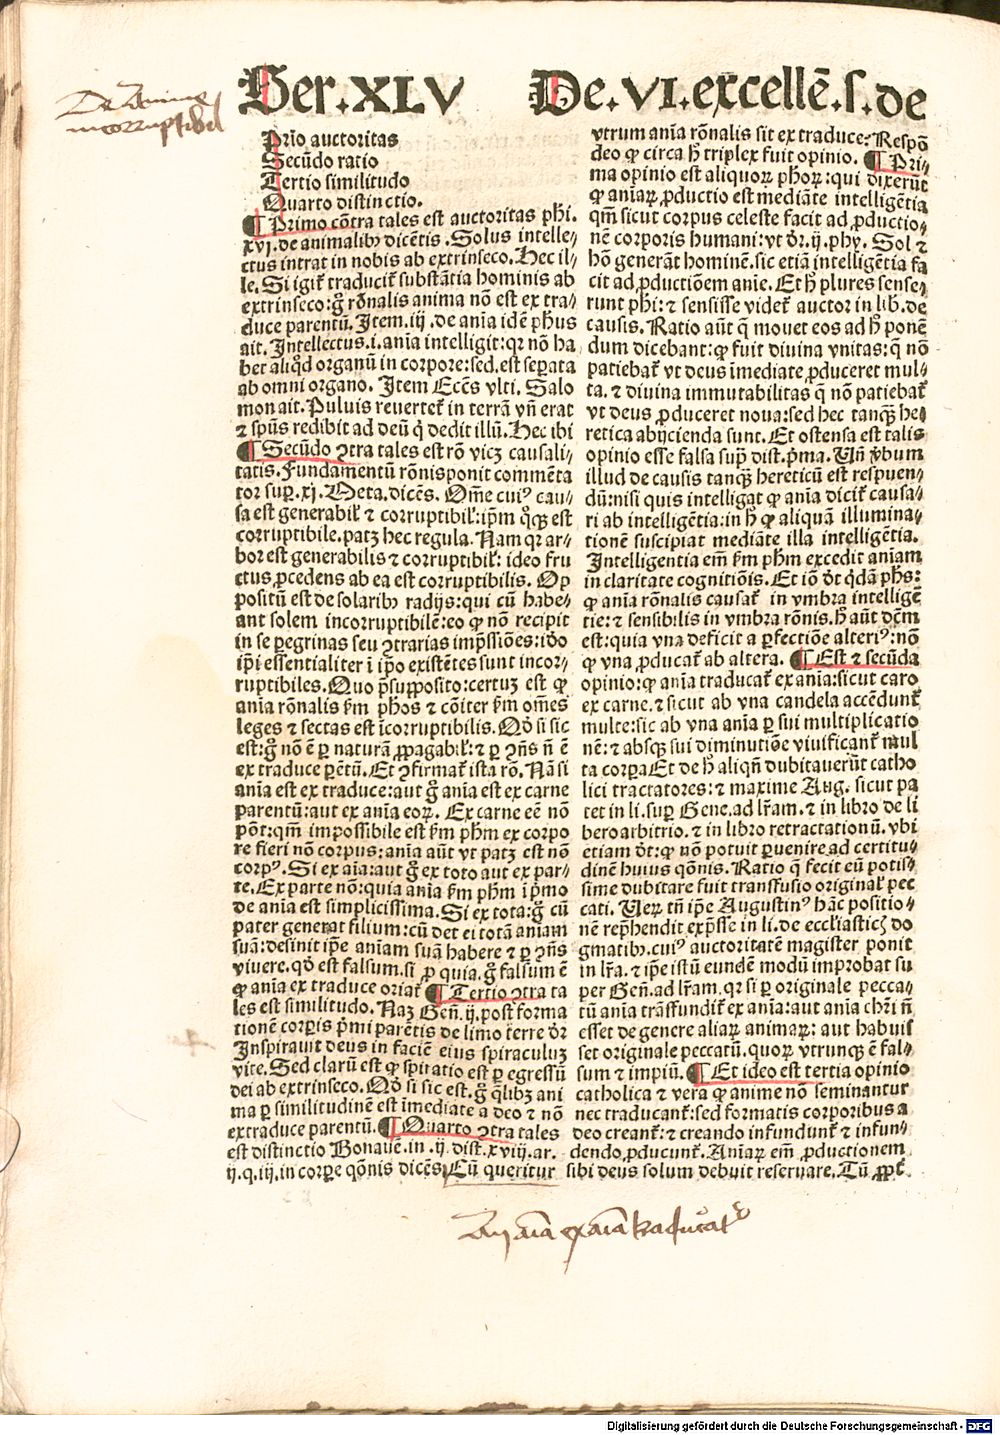 Ser.XLV De.VI.excellē.s.de
De Anime
incorruptibel
Prīo auctoritas
Secūdo ratio
Tertio similitudo
Quarto distinctio.
¶ Primo cōtra tales est auctoritas phi.
xvi.de animalibꝫ dicētis .Solus intelle⸗
ctus intrat in nobis ab extrinseco.Hec il⸗
le.Si igit᷑ traducit᷑ substātia hominis ab
extrinseco:gͦ rōnalis anima nō est ex tra⸗
duce parentū.Item.iij.de anīa idē phūs
ait.Intellectus.i.anīa intelligit:qꝛ nō ha
bet aliqd organū in corpore:sed.est seꝑata
ab omni organo. Item Eccēs vlti. Salo
mon ait.Puluis reuertet᷑ in terrā vn̄ erat
⁊ spūs redibit ad deū q̇ dedit illū.Hec ibi
¶ Secūdo ꝯtra tales est rō vicꝫ causali⸗
tatis.Fundamentū rōnis ponit commēta
tor suꝑ.xj.Meta.dicēs. Om̄e cuiꝰ cau⸗
sa est generabil᷑ ⁊ corruptibil᷑:ip̄m qͦꝫ est
corruptibile.patꝫ hec regula.Nam qꝛ ar⸗
bor est generabilis ⁊ corruptibil᷑: ideo fru
ctus ꝓcedens ab ea est corruptibilis. Op
positū est de solaribꝫ radijs:qui cū habe⸗
ant solem incorruptibilē:eo ꝙ nō recipit
in se ꝑegrinas seu ꝯtrarias imp̄ssiōes:iōo
ip̄i essentialiter ī ip̄o existētes sunt incor⸗
ruptibiles.Quo p̄supposito:certuꝫ est ꝙ
anīa rōnalis ẜm phos ⁊ cōiter ẜm om̄es
leges ⁊ sectas est īcorruptibilis. Qd̄ si sic
est:gͦ nō ē ꝑ naturā ꝓpagabil᷑:⁊ ꝑ ꝯn̄s n̄ ē
ex traduce ꝑētū.Et ꝯfirmat᷑ ista rō. Nā si
anīa est ex traduce:aut gͦ anīa est ex carne
parentū:aut ex anīa eoꝝ. Ex carne eē nō
pōt:qm̄ impossibile est ẜm phm ex corpo
re fieri nō corpus:anīa aūt vt patꝫ est nō
corpꝰ.Si ex aīa:aut gͦ ex toto aut ex par⸗
te.Ex parte nō:quia anīa ẜm phm ī p̄mo
de anīa est simplicissima.Si ex tota:gͦ cū
pater generat filium:cū det ei totā aniam
suā:desinit ip̄e aniam suā habere ⁊ ꝑ ꝯn̄s
viuere.qd̄ est falsum.si ꝓ quia.gͦ falsum ē
ꝙ anīa ex traduce oriat᷑ ¶ Tertio ꝯtra ta
les est similitudo. Naꝫ Gen̄.ij.post forma
tionē corꝑis p̄mi parētis de limo terre dr̄
Inspirauit deus in faciē eius spiraculuꝫ
vite. Sed clarū est ꝙ spiratio est ꝑ egressū
dei ab extrinseco.Qd̄ si sic est.gͦ qlibꝫ ani
ma ꝑ similitudinē est īmediate a deo ⁊ nō
ex traduce parentū. ¶ Quarto ꝯtra tales
est distinctio Bonauē.in .ij.dist.xviij.ar.
ij.q.iij.in corꝑe qōnis dicēs Cū queritur
vtrum anīa rōnalis sit ex traduce:Respō
deo ꝙ circa h̄ triplex fuit opinio. ¶ Pri⸗
ma opinio est aliquoꝝ phoꝝ:qui dixerūt
ꝙ aniaꝝ ꝓductio est mediāte intelligētia
qm̄ sicut corpus celeste facit ad ꝓductio⸗
nē corporis humani:vt dr̄.ij.phy. Sol ⁊
hō generāt hominē.sic etiā intelligētia fa
cit ad ꝓductiōem anie. Et h̄ plures sense⸗
runt phi:⁊ sensisse videt᷑ auctor in lib.de
causis. Ratio aūt q̄ mouet eos ad h̄ ponē
dum dicebant:ꝙ fuit diuina vnitas:q̄ nō
patiebat᷑ vt deus īmediate ꝓduceret mul⸗
ta. ⁊ diuina immutabilitas q̄ nō patiebat᷑
vt deus ꝓduceret noua:sed hec tanqꝫ he⸗
retica abijcienda sunt. Et ostensa est talis
opinio esse falsa sup̄ dist.p̄ma. Vn̄ v̄bum
illud de causis tanqꝫ hereticū est respuen⸗
dū:nisi quis intelligat ꝙ anīa dicit᷑ causa⸗
ri ab intelligētia:in h̄ ꝙ aliquā illumina⸗
tionē suscipiat mediāte illa intelligētia.
Intelligentia em̄ ẜm phm excedit aniam
in claritate cognitiōis.Et iō dt̄ q̇dā phs:
ꝙ anīa rōnalis causat᷑ in vmbra intelligē
tie:⁊ sensibilis in vmbra rōnis.h̄ aūt dc̄m
est:quia vna deficit a ꝑfectiōe alteriꝰ:nō
ꝙ vna ꝓducat᷑ ab altera. ¶ Est ⁊ secūda
opinio:ꝙ anīa traducat᷑ ex anīa:sicut caro
ex carne.⁊ sicut ab vna candela accēdunt᷑
multe:sic ab vna anīa ꝑ sui multiplicatio
nē:⁊ absqꝫ sui diminutiōe viuificant᷑ mul
ta corꝑa Et de h̄ aliqn̄ dubitauerūt catho
lici tractatores:⁊ maxime Aug. sicut pa
tet in li.suꝑ Gene.ad lr̄am.⁊ in libro de li
bero arbitrio.⁊ in libro retractationū.vbi
etiam dt̄:ꝙ nō potuit ꝑuenire ad certitu⸗
dinē huius qōnis. Ratio q̄ fecit eū potis⸗
sime dubitare fuit transfusio original᷑ pec
cati. Veꝝ tn̄ ip̄e Augustinꝰ hāc positio⸗
nē rep̄hendit exp̄sse in li.de eccl'iasticꝭ do
gmatibꝫ.cuiꝰ auctoritatē magister ponit
in lr̄a.⁊ ip̄e istū eundē modū improbat su
ꝑ Gen̄.ad lr̄am.qꝛ si ꝑ originale pecca⸗
tū anīa trāsfundit᷑ ex anīa:aut anīa chr̄i n̄
esset de genere aliaꝝ animaꝝ: aut habuis
set originale peccatū.quoꝝ vtrunqꝫ ē fal⸗
sum ⁊ impiū. ¶ Et ideo est tertia opinio
catholica ⁊ vera ꝙ anime nō seminantur
nec traducant᷑:sed formatis corporibus a
deo creant᷑:⁊ creando infundunt᷑ ⁊ infun⸗
dendo ꝓducunt᷑. Aniaꝝ em̄ ꝓductionem
sibi deus solum debuit reseruare. Tū ꝓpt᷑
An aīa ex aīa traducat᷑
Digitalisierung gefördert durch die Deutsche Forschungsgemeinschaft - DFG